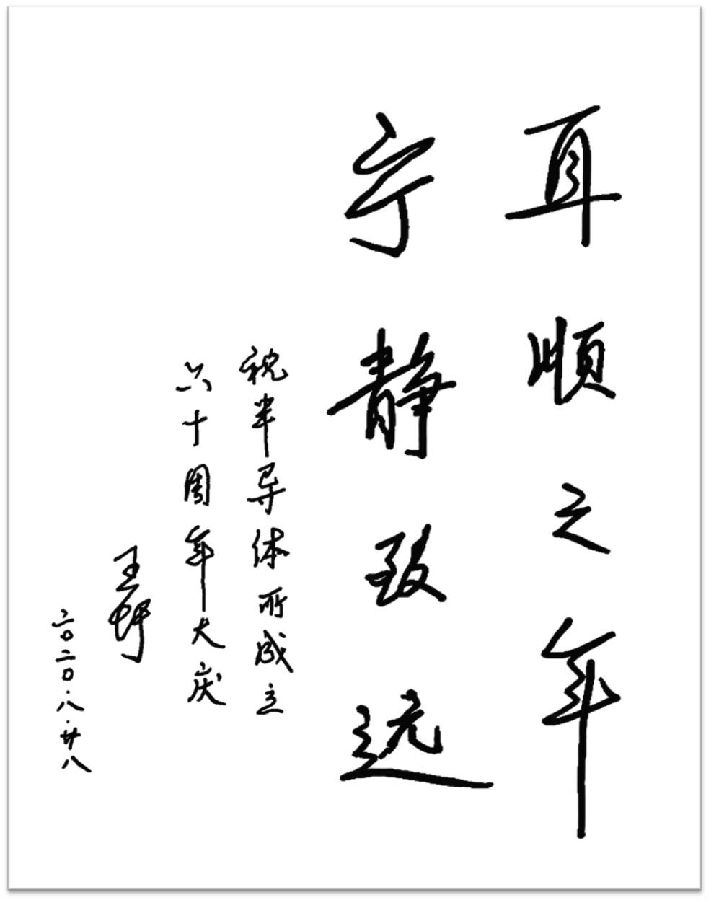 耳顺之年
宁静致远
祝半导体所成立
六十周年大庆
王圩
二〇二〇.八.廿八